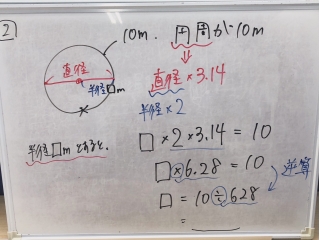 2
10m.
円周が10m
⇓
直径
半径□m
直径×3.14
半径×2
半径□mとすると.
□×2×3.14=10
□×6.28=10
逆算
□=10÷628
=